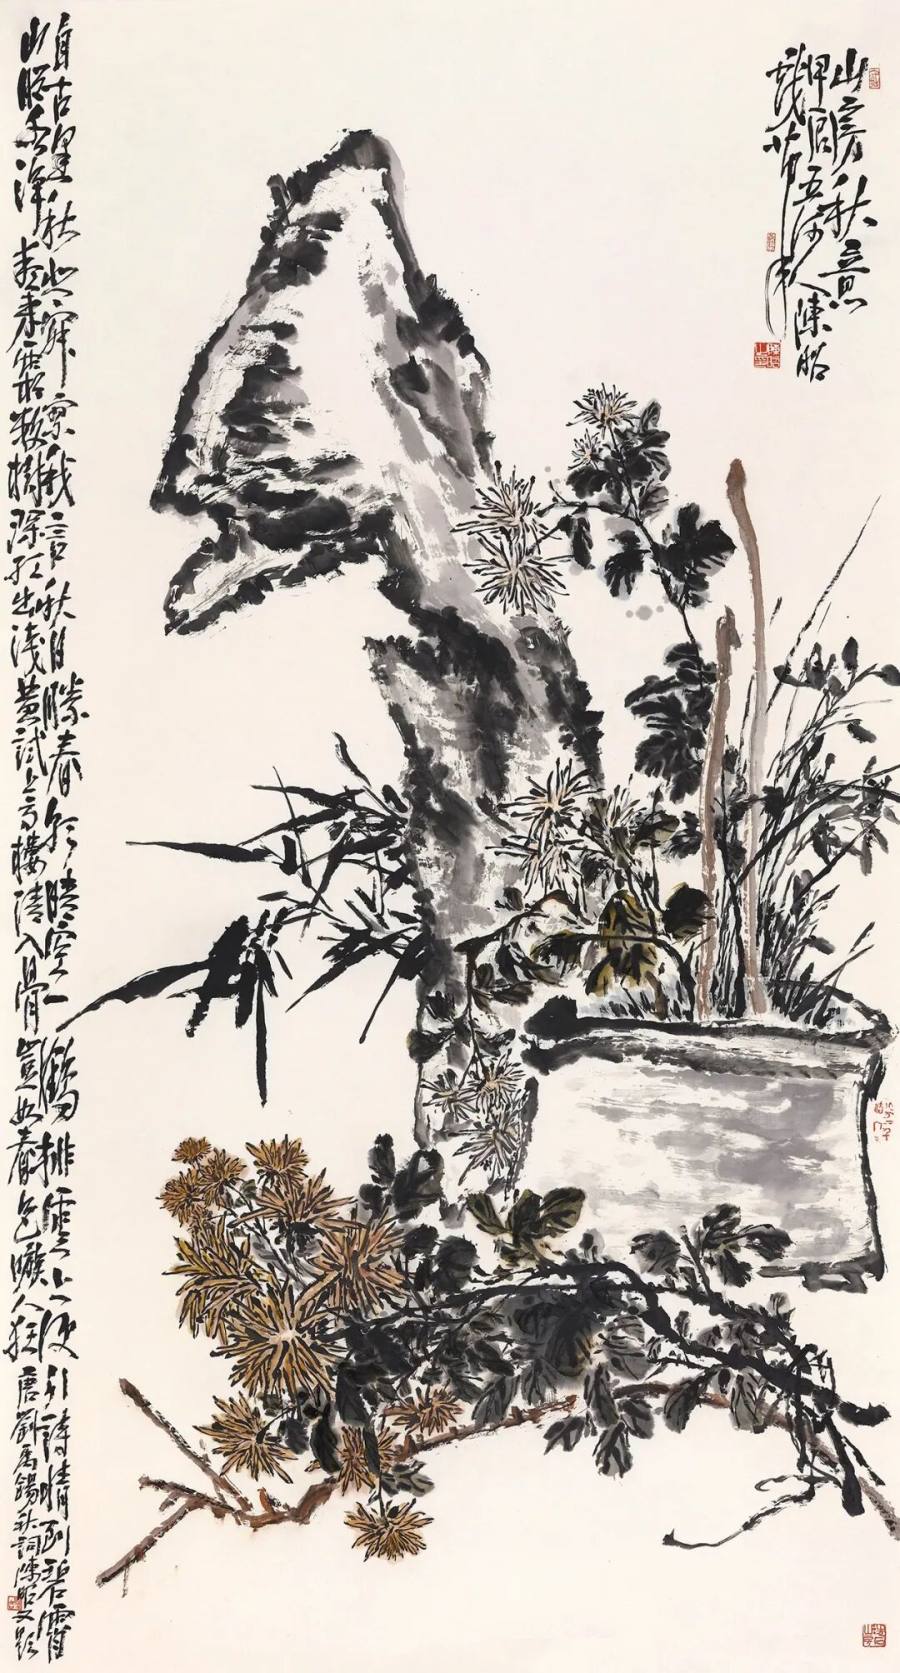 山房秋意
甲辰五沙人陳昭
自古逢秋悲寂寥我言秋日勝春朝晴空一鶴排雲上便引詩情到碧霄
山明水淨夜來霜數樹深紅出淺黃試上高樓清入骨豈如春色嗾人狂唐劉禹錫秋詞陳昭又題